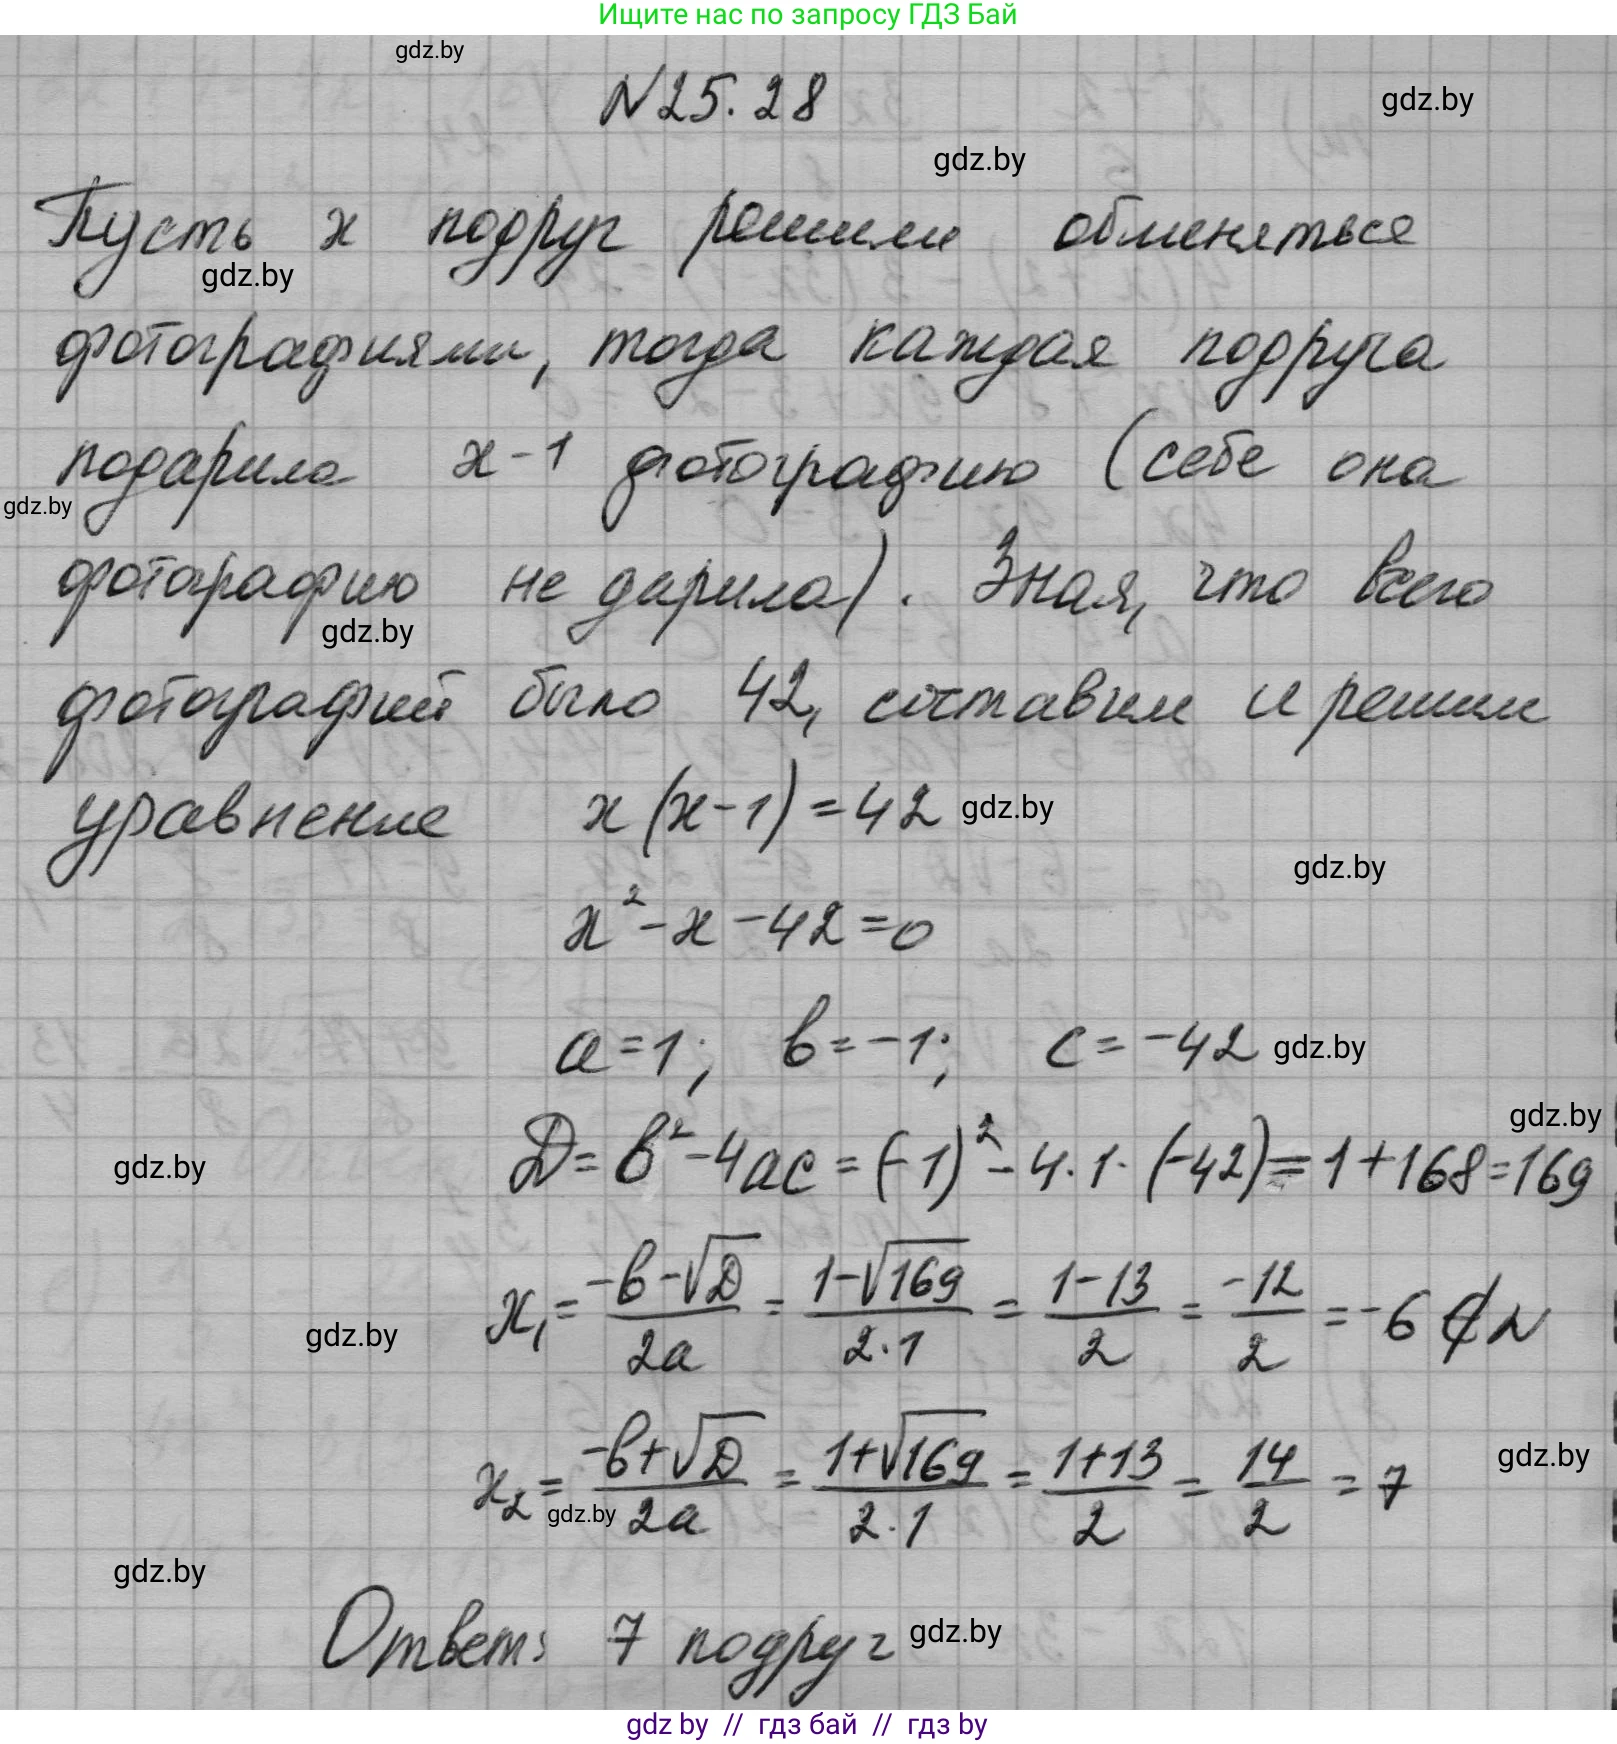 Ищите нас по запросу ГДЗ Бай
gdz.by
N25.28
gdz.by
gdz.by
Пусть x подруг решили обменяться
gdz.by
фотографиями, тогда каждая подруга
подарила x-1 фотографию (себе она
gdz.by
фотографию не дарила). Зная, что всего
gdz.by
фотографий было 42, составим и решим
уравнение x(x-1)=42 gdz.by
gdz.by
x²-x-42=0
a=1; b=-1; c=-42 gdz.by
gdz.by
gdz.by D=b²-4ac=(-1)²-4·1·(-42)=1+168=169
gdz.by x₁=(-b-√D)/2a=(1-√169)/2·1=(1-13)/2=-12/2=-6 ∉ N
x₂=(-b+√D)/2a=(1+√169)/2·1=(1+13)/2=14/2=7 gdz.by
gdz.by
gdz.by
Ответ: 7 подруг gdz.by
gdz by // гдз бай // гдз by